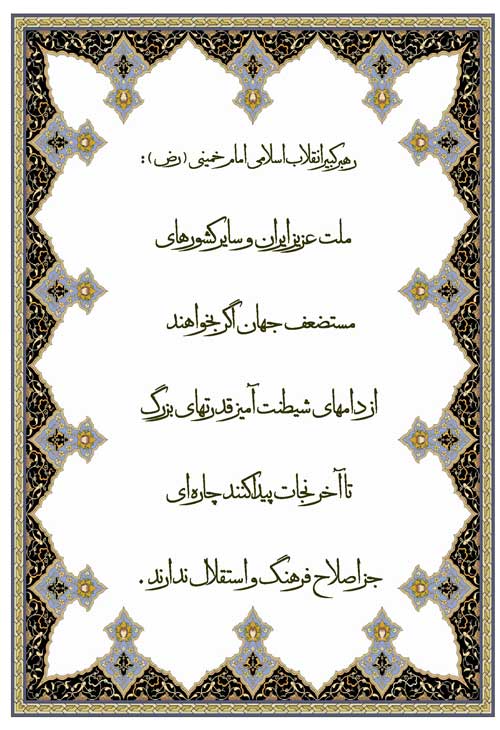 رهبر کبیر انقلاب اسلامی امام خمینی (رض) :
ملت عزیز ایران و سایر کشورهای
مستضعف جهان اگر بخواهند
از دامهای شیطنت آمیز قدرتهای بزرگ
تا آخر نجات پیدا کنند چاره ای
جز اصلاح فرهنگ و استقلال ندارند .